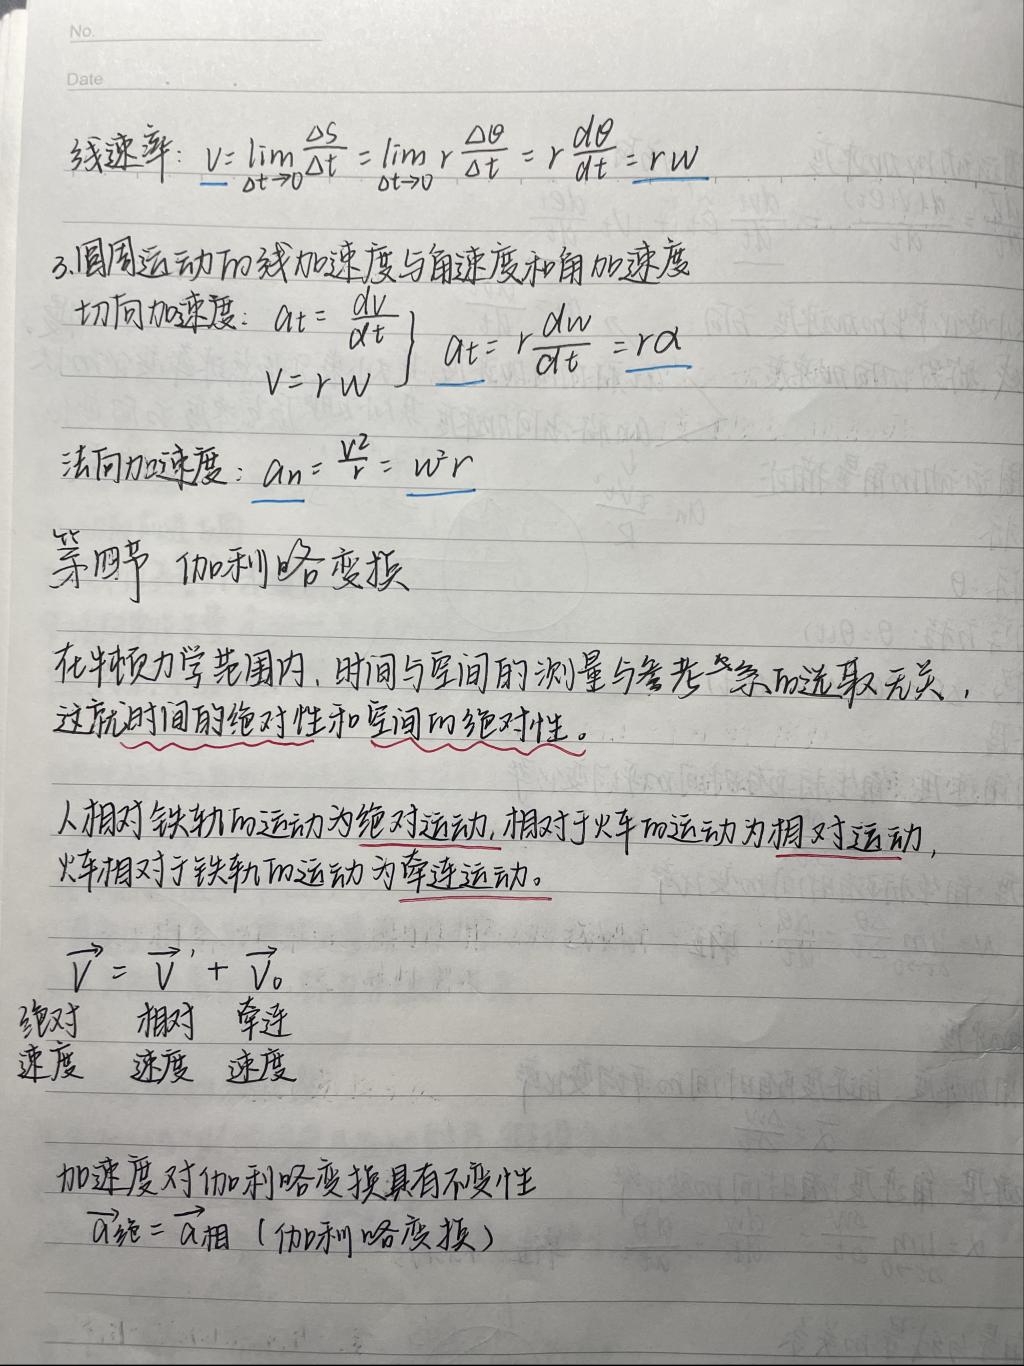 No.
Date
线速率: v = lim Δt→0 Δs/Δt = lim Δt→0 r Δθ/Δt = r dθ/dt = rw
3.圆周运动的线加速度与角速度和角加速度
切向加速度: at = dv/dt } at = r dw/dt = rα
v = rw
法向加速度: an = v²/r = w²r
第四节 伽利略变换
在牛顿力学范围内, 时间与空间的测量与参考系的选取无关,
这就时间的绝对性和空间的绝对性。
人相对铁轨的运动为绝对运动, 相对于火车的运动为相对运动,
火车相对于铁轨的运动为牵连运动。
v⃗ = v⃗' + v⃗₀
绝对 相对 牵连
速度 速度 速度
加速度对伽利略变换具有不变性
a⃗绝 = a⃗相 (伽利略变换)